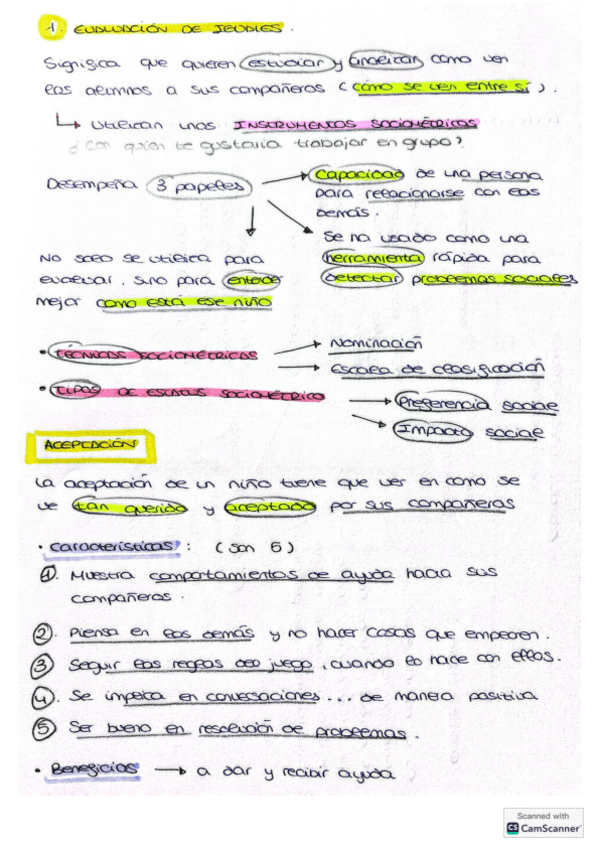 1. EVALUACIÓN DE IGUALES.
Significa que quieren estudiar y analizar como ven
los alumnos a sus compañeros (cómo se ven entre sí).
↳ Utilizan unos INSTRUMENTOS SOCIOMÉTRICOS
¿Con quien te gustaría trabajar en grupo?
Desempeña 3 papeles → Capacidad de una persona
para relacionarse con los
demás.
Se ha usado como una
herramienta rápida para
detectar problemas sociales
No solo se utiliza para
evaluar, sino para entender
mejor como está ese niño
• TÉCNICAS SOCIOMÉTRICAS → Nominación
→ Escala de clasificación
• TIPOS DE ESTATUS SOCIOMÉTRICO → Preferencia social
→ Impacto social
ACEPTACIÓN
La aceptación de un niño tiene que ver en como se
ve tan querido y aceptado por sus compañeros
• Características: (son 5)
1. Muestra comportamientos de ayuda hacia sus
compañeros.
2. Piensa en los demás y no hacer cosas que empeoren.
3. Seguir las reglas del juego, cuando lo hace con ellos.
4. Se implica en conversaciones... de manera positiva
5. Ser bueno en resolución de problemas.
• Beneficios → a dar y recibir ayuda
Scanned with
CS CamScanner